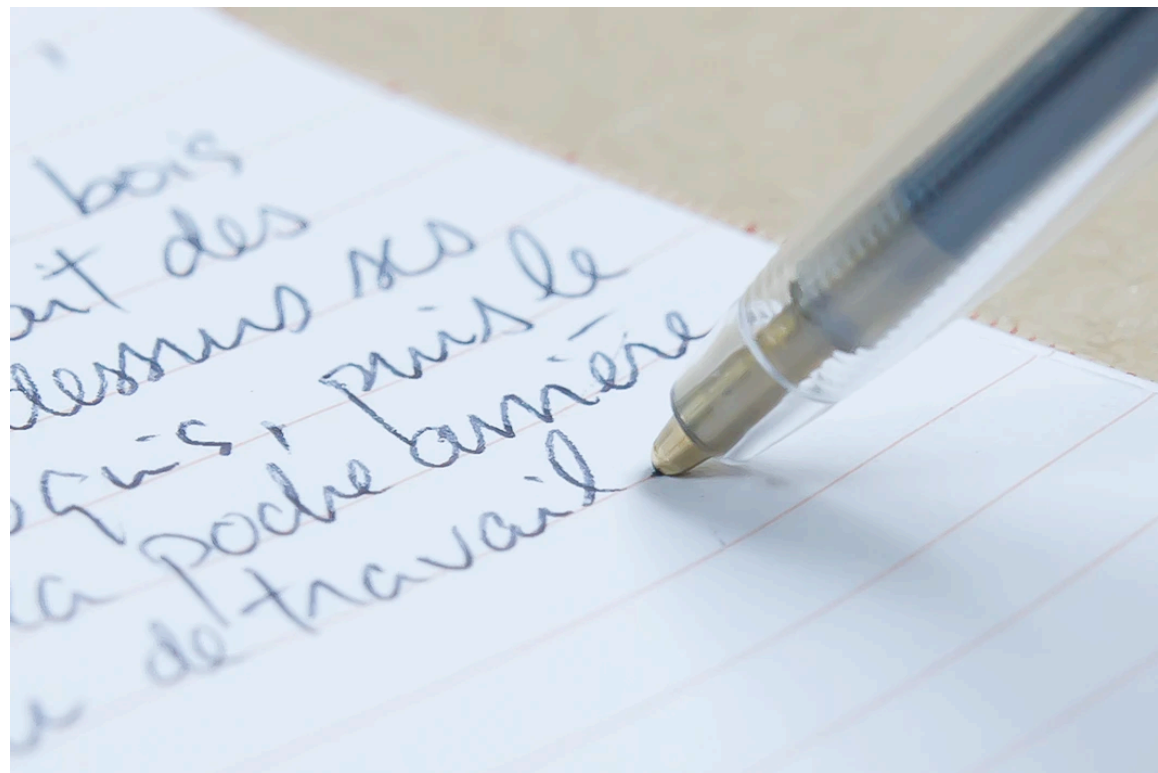 bois
ait des
dessus ses
oquis, puis le
la poche arrière
de travail